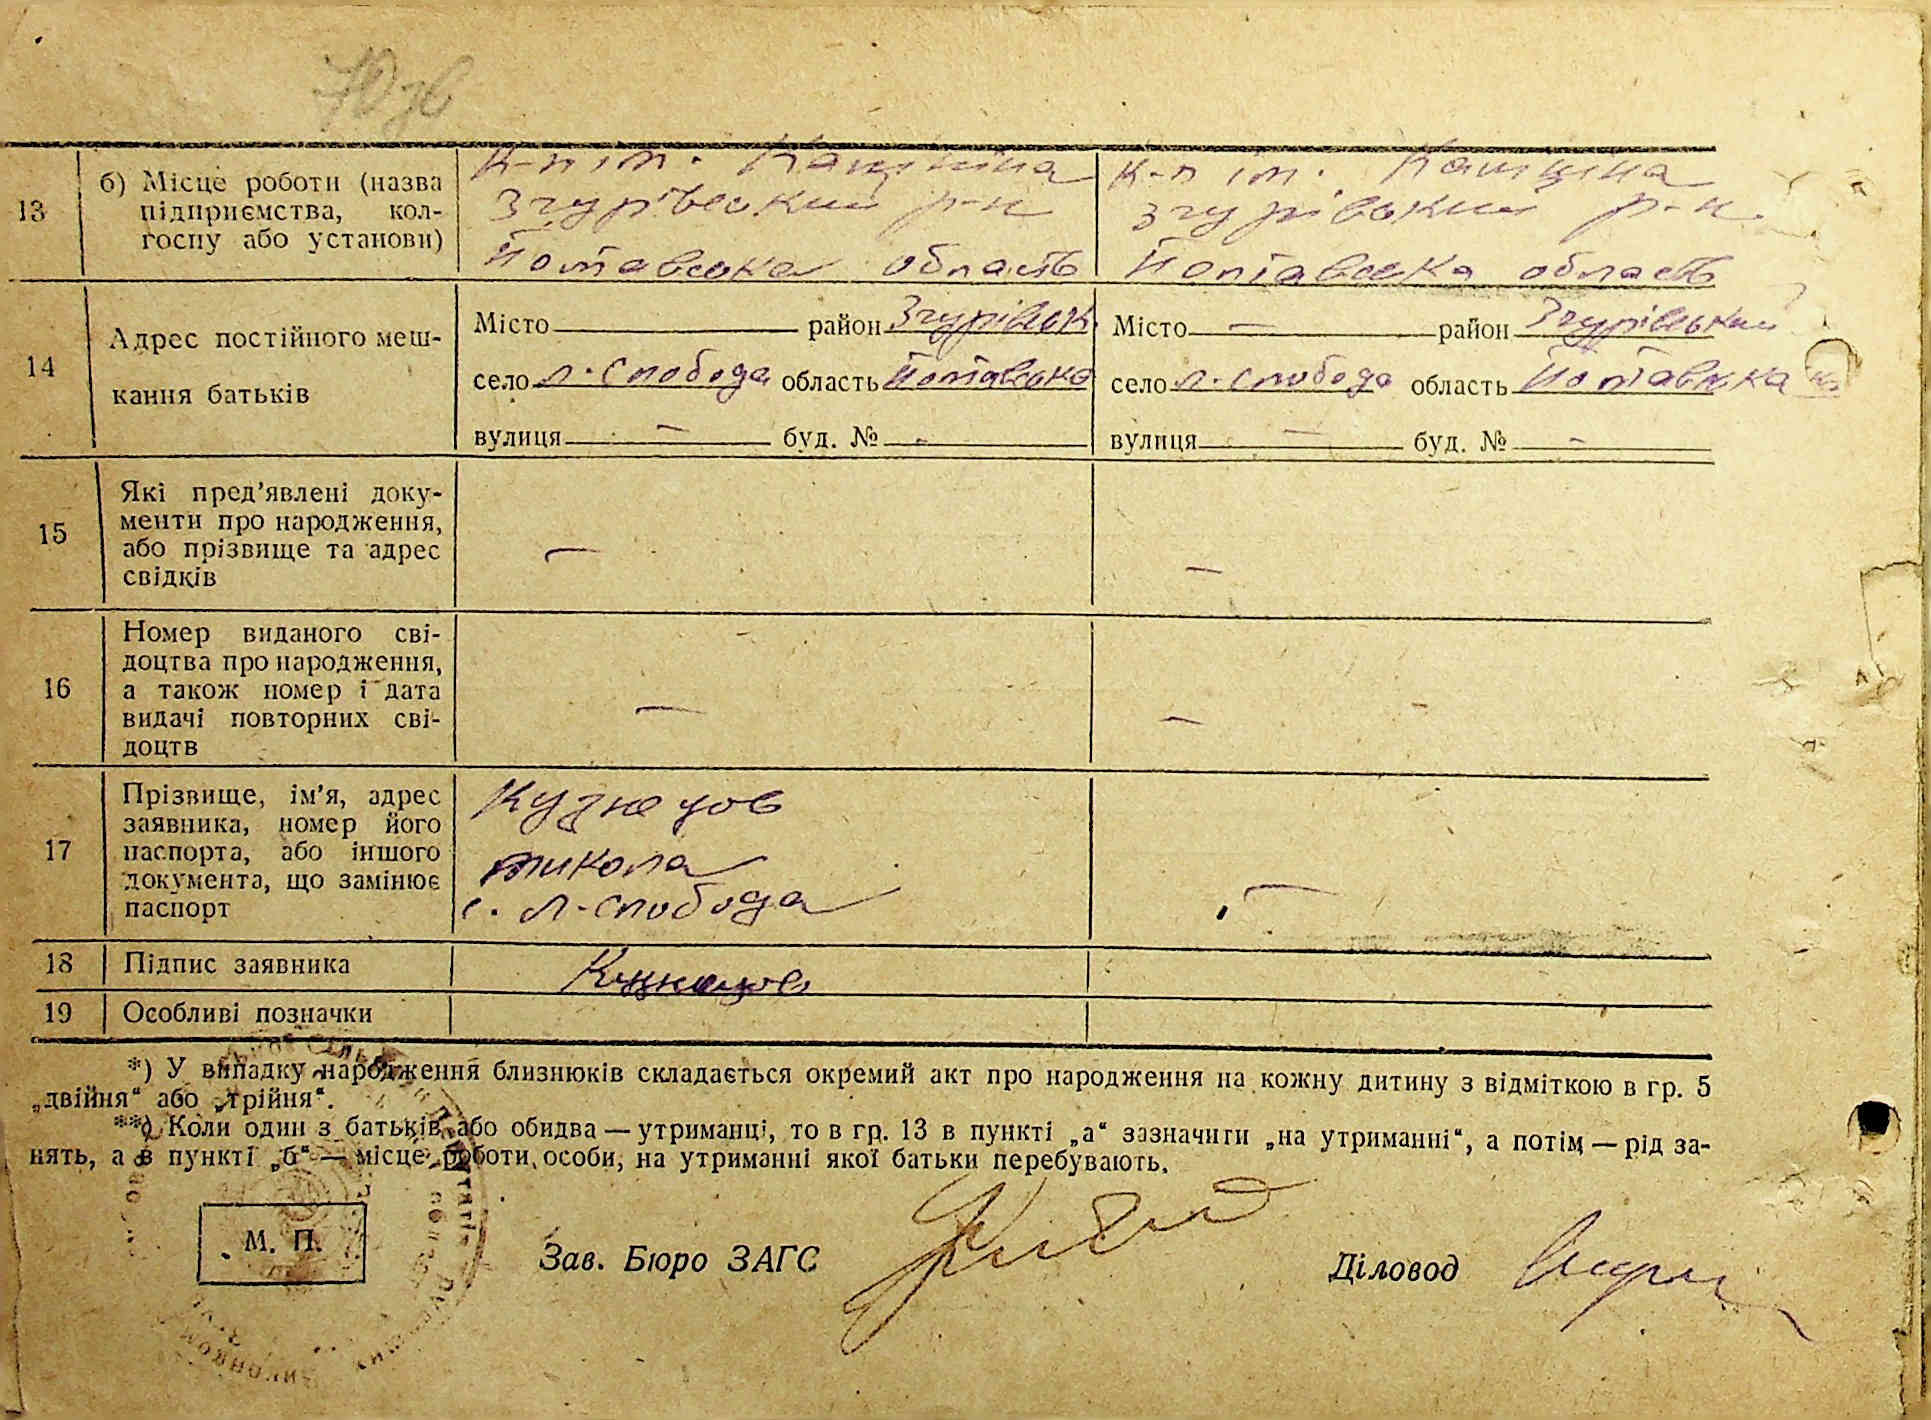 13
б) Місце роботи (назва
підприємства, кол-
госпу або установи)
к-п ім.
Згурівський р-н
Полтавська область
к-п ім.
Згурівський р-н.
Полтавська область
14
Адрес постійного меш-
кання батьків
Місто район Згурівськ
село Л-Слобода область Полтавська
вулиця — буд. № -
Місто — район Згурівський
село Л-Слобода область Полтавська
вулиця — буд. № -
15
Які пред’явлені доку-
менти про народження,
або прізвище та адрес
свідків
—
—
16
Номер виданого сві-
доцтва про народження,
а також номер і дата
видачі повторних сві-
доцтв
—
—
17
Прізвище, ім’я, адрес
заявника, номер його
паспорта, або іншого
документа, що замінює
паспорт
Кузнецов
Микола
с. Л-Слобода
—
18 Підпис заявника Кузнецов
19 Особливі позначки
*) У випадку народження близнюків складається окремий акт про народження на кожну дитину з відміткою в гр. 5
„двійня“ або „трійня“.
**) Коли один з батьків або обидва — утриманці, то в гр. 13 в пункті „а“ зазначити „на утриманні“, а потім — рід за-
нять, а в пункті „б“ — місце роботи особи, на утриманні якої батьки перебувають.
М. П.
Зав. Бюро ЗАГС
Діловод